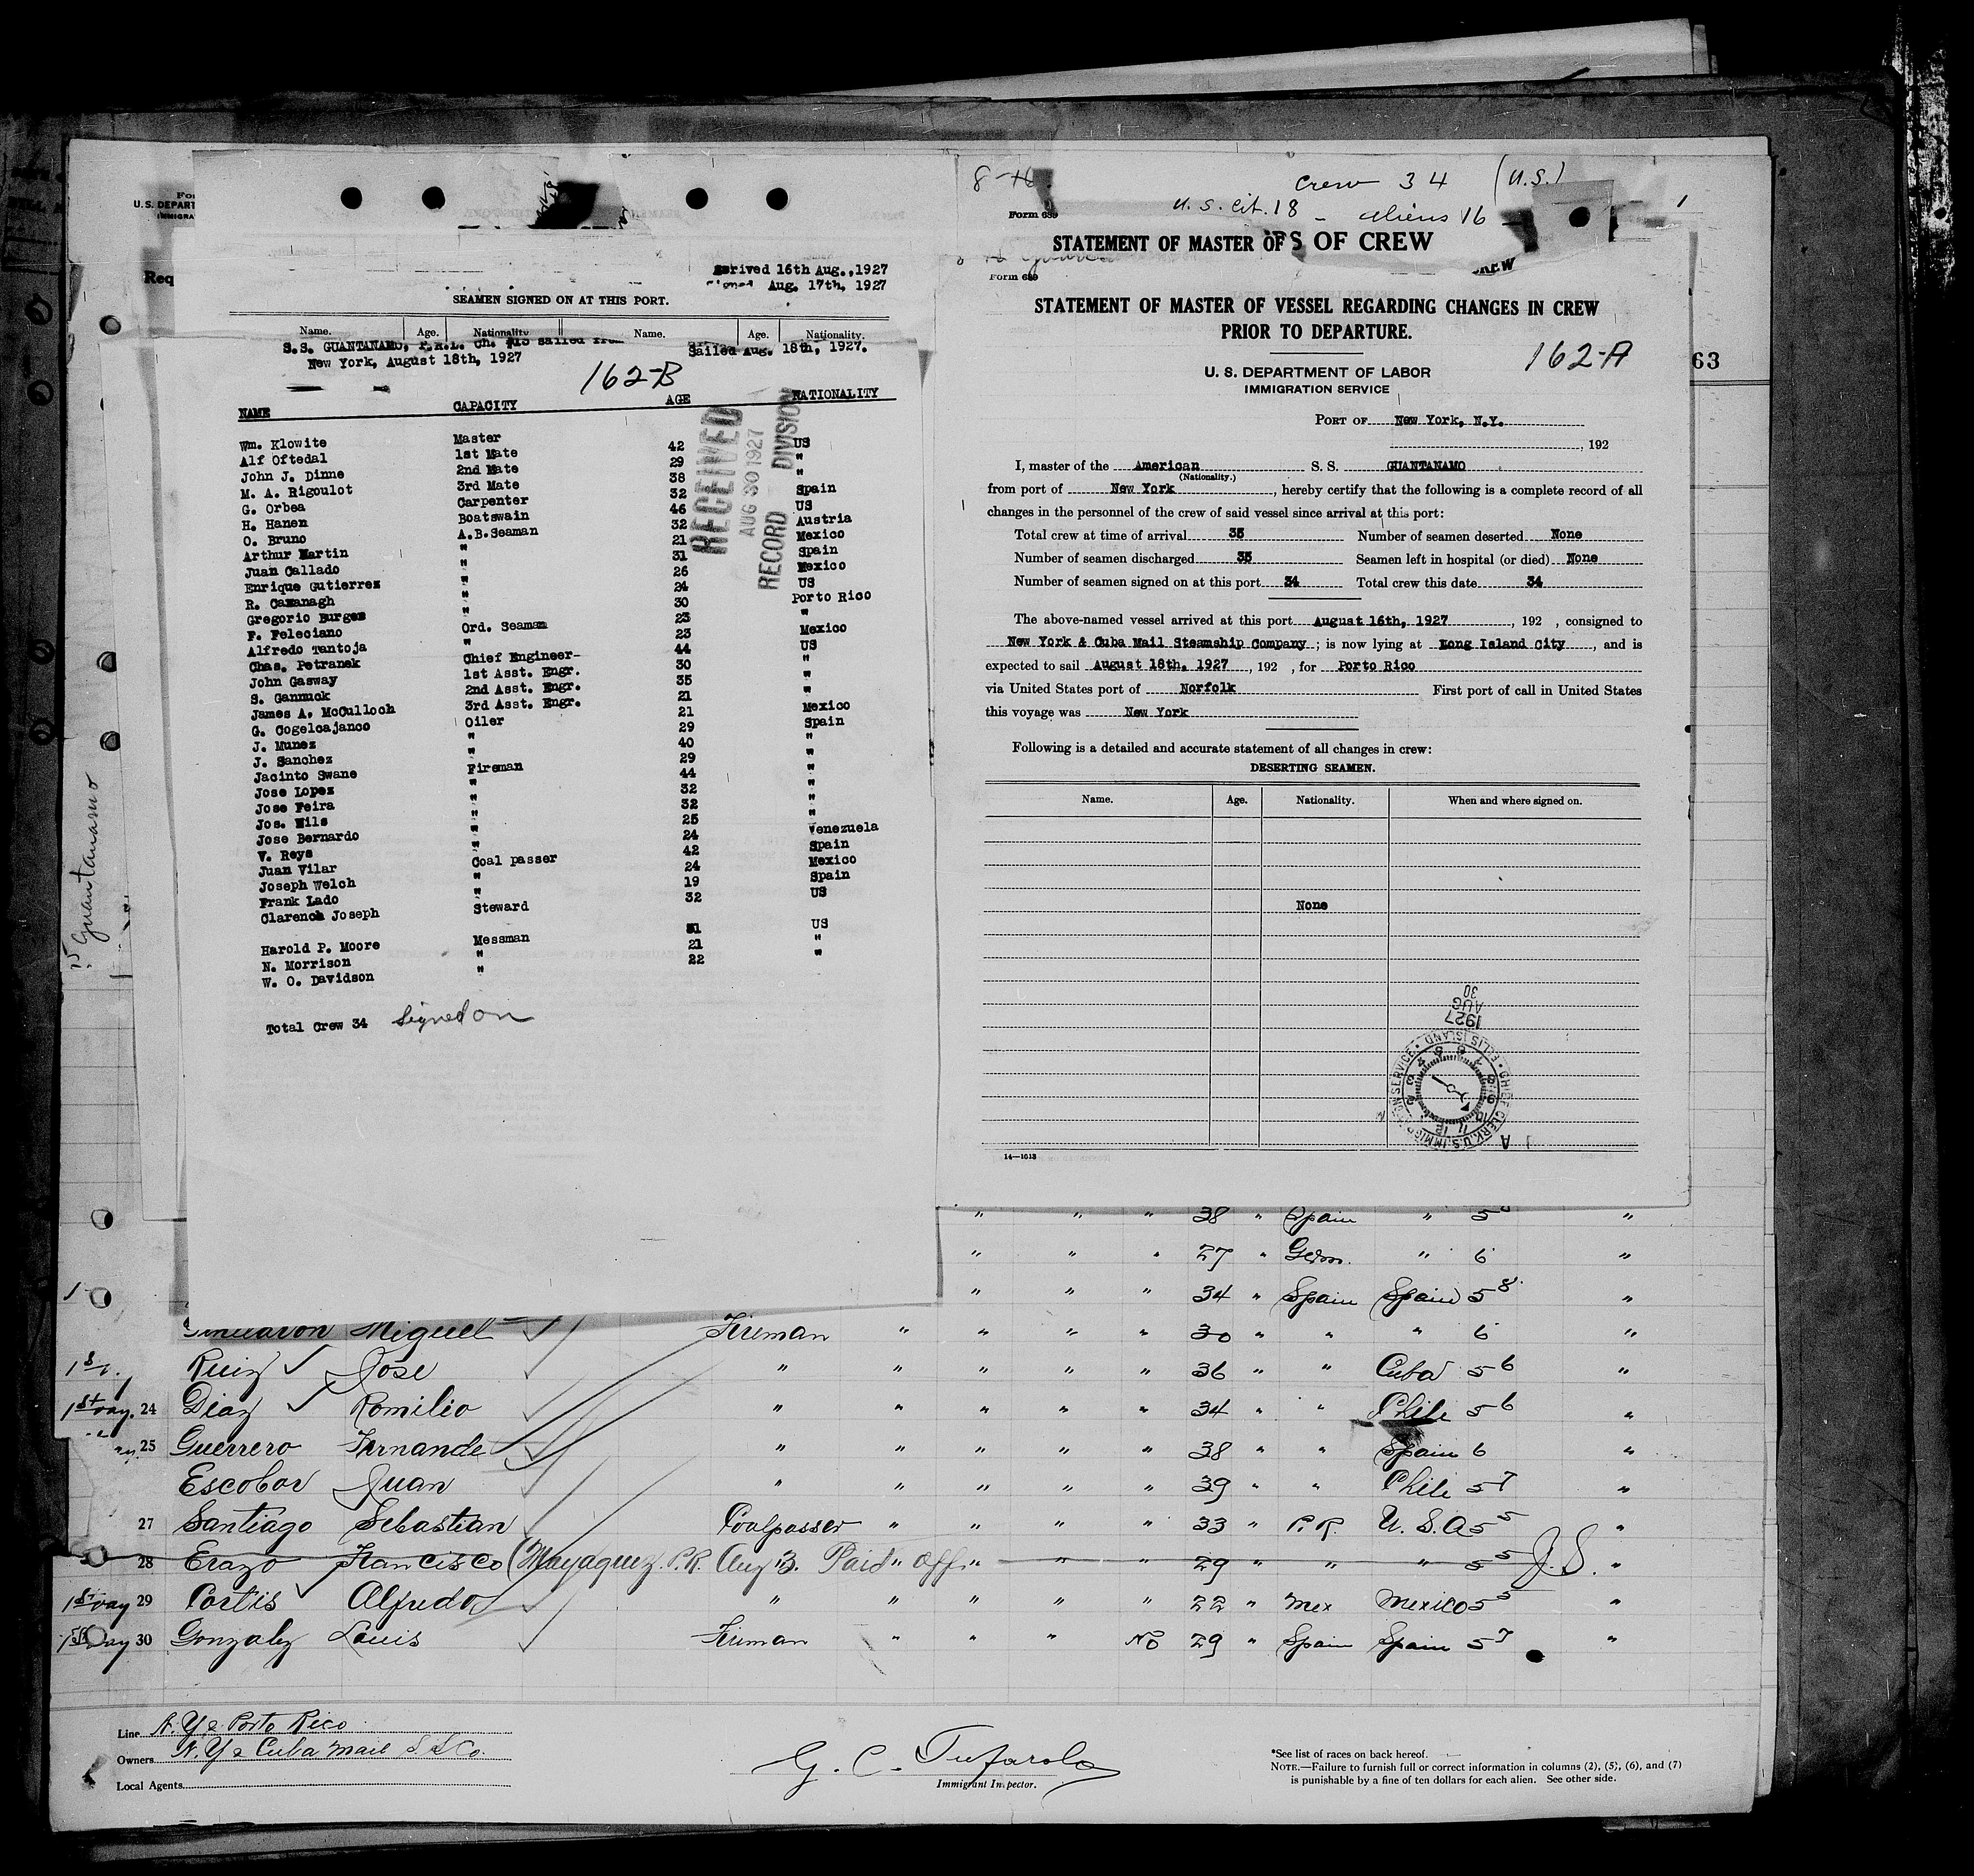 For
U. S. DEPART
IMMIGRA
Req
rived 16th Aug.,1927
Aug. 17th, 1927
SEAMEN SIGNED ON AT THIS PORT.
Name. Age. Nationality Name. Age. Nationality.
S.S. GUANTANAMO, P.R.L. Ch. #15 sailed from Sailed Aug. 18th, 1927.
New York, August 18th, 1927
162-B
NAME CAPACITY AGE NATIONALITY
RECEIVED
AUG 30 1927
RECORD DIVISION
Wm. Klowite Master 42 US
Alf Oftedal 1st Mate 29 "
John J. Dinne 2nd Mate 38 "
M. A. Rigoulot 3rd Mate 32
G. Orbea Carpenter 46 Spain
H. Hanen Boatswain 32 US
O. Bruno A.B.Seaman 21 Austria
Arthur Martin " 31 Mexico
Juan Callado " 26 Spain
Enrique Gutierrez " 24 Mexico
R. Cavanagh " 30 US
Gregorio Burgos " 23 Porto Rico
F. Feleciano Ord. Seaman 23 "
Alfredo Tantoja " 44 Mexico
Chas. Petranek Chief Engineer- 30 US
John Gasway 1st Asst. Engr. 35 "
S. Gannuck 2nd Asst. Engr. 21 "
James A. McCulloch 3rd Asst. Engr. 21
G. Cogelcajanco Oiler 29 Mexico
J. Munez " 40 Spain
J. Sanchez " 29 "
Jacinto Swane Fireman 44 "
Jose Lopez " 32 "
Jose Feira " 32 "
Jos. Nils " 25 "
Jose Bernardo " 24 "
V. Reys " 42 Venezuela
Juan Vilar Coal passer 24 Spain
Joseph Welch " 19 Mexico
Frank Lado " 32 Spain
Clarence Joseph Steward US
31 US
Harold P. Moore Messman 21 "
N. Morrison " 22 "
W. O. Davidson "
Total Crew 34 Signed on
Guantanamo
8-16
Crew 34 (U.S.)
U.S. Cit. 18 - aliens 16
1
Form 689
STATEMENT OF MASTER OF S OF CREW
REW
Form 689
STATEMENT OF MASTER OF VESSEL REGARDING CHANGES IN CREW
PRIOR TO DEPARTURE.
162-A
63
U. S. DEPARTMENT OF LABOR
IMMIGRATION SERVICE
PORT OF New York, N.Y.
, 192
I, master of the American S. S. GUANTANAMO
(Nationality.)
from port of New York, hereby certify that the following is a complete record of all
changes in the personnel of the crew of said vessel since arrival at this port:
Total crew at time of arrival 35 Number of seamen deserted None
Number of seamen discharged 35 Seamen left in hospital (or died) None
Number of seamen signed on at this port 34 Total crew this date 34
The above-named vessel arrived at this port August 16th, 1927, 192 , consigned to
New York & Cuba Mail Steamship Company; is now lying at Long Island City, and is
expected to sail August 18th. 1927, 192 , for Porto Rico
via United States port of Norfolk First port of call in United States
this voyage was New York
Following is a detailed and accurate statement of all changes in crew:
DESERTING SEAMEN.
Name. Age. Nationality. When and where signed on.
None
1927
AUG
30
CHIEF CLERK, U.S. IMMIGRATION SERVICE • ELLIS ISLAND •
14—1613
" " " 38 " Spain " 5 "
" " " 27 " Germ. " 6 "
1 " " " 34 " Spain Spain 5 8 "
Miguel Fireman " " " " 30 " " " 6 "
Ruiz Jose " " " " " 36 " " Cuba 5 6 "
1st Vay. 24 Diaz Romilio " " " " " 34 " " Chile 5 6 "
25 Guerrero Fernande " " " " " 38 " " Spain 6 "
Escobar Juan " " " " " 39 " " Chile 5 7 "
27 Santiago Sebastian Coalpasser " " " " 33 " P.R. U.S.A 5 5 "
28 Erazo Francisco (Mayaguez. P.R. Aug 3. Paid " off. " " " 29 " " " 5 5 J.S. "
1st Vay 29 Cortis Alfredo " " " " " 22 " Mex Mexico 5 5 "
1st Vay 30 Gonzalez Louis Fireman " " " No 29 " Spain Spain 5 7 "
Line N.Y & Porto Rico
Owners N.Y & Cuba Mail S.S Co.
Local Agents
G. C. Tufarolo
Immigrant Inspector.
*See list of races on back hereof.
NOTE.—Failure to furnish full or correct information in columns (2), (5), (6), and (7)
is punishable by a fine of ten dollars for each alien. See other side.